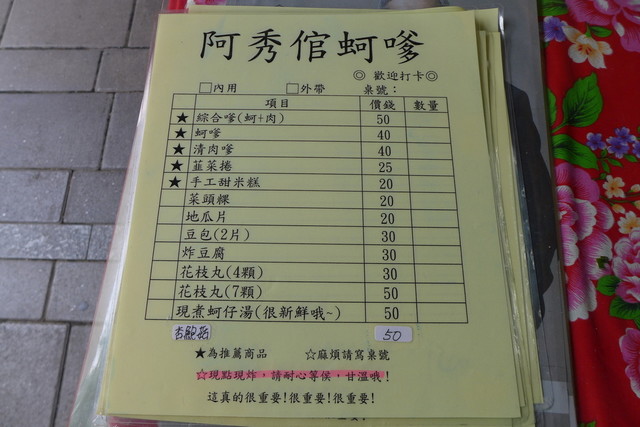 阿秀倌蚵嗲
◎ 歡迎打卡◎
□內用 □外帶 桌號：
項目 價錢 數量
★ 綜合嗲(蚵+肉) 50
★ 蚵嗲 40
★ 清肉嗲 40
★ 韮菜捲 25
★ 手工甜米糕 20
菜頭粿 20
地瓜片 20
豆包(2片) 30
炸豆腐 30
花枝丸(4顆) 30
花枝丸(7顆) 50
現煮蚵仔湯(很新鮮哦~) 50
杏鮑菇 50
★為推薦商品 ☆麻煩請寫桌號
☆現點現炸，請耐心等侯，甘溫哦！
這真的很重要!很重要!很重要!